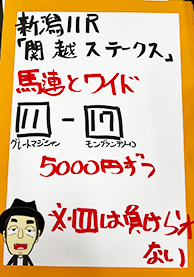 新潟11R
「関越ステークス」
馬連とワイド
11-17
グレートマジシャン モンブランテソーロ
5000円ずつ
は負けられ
ない